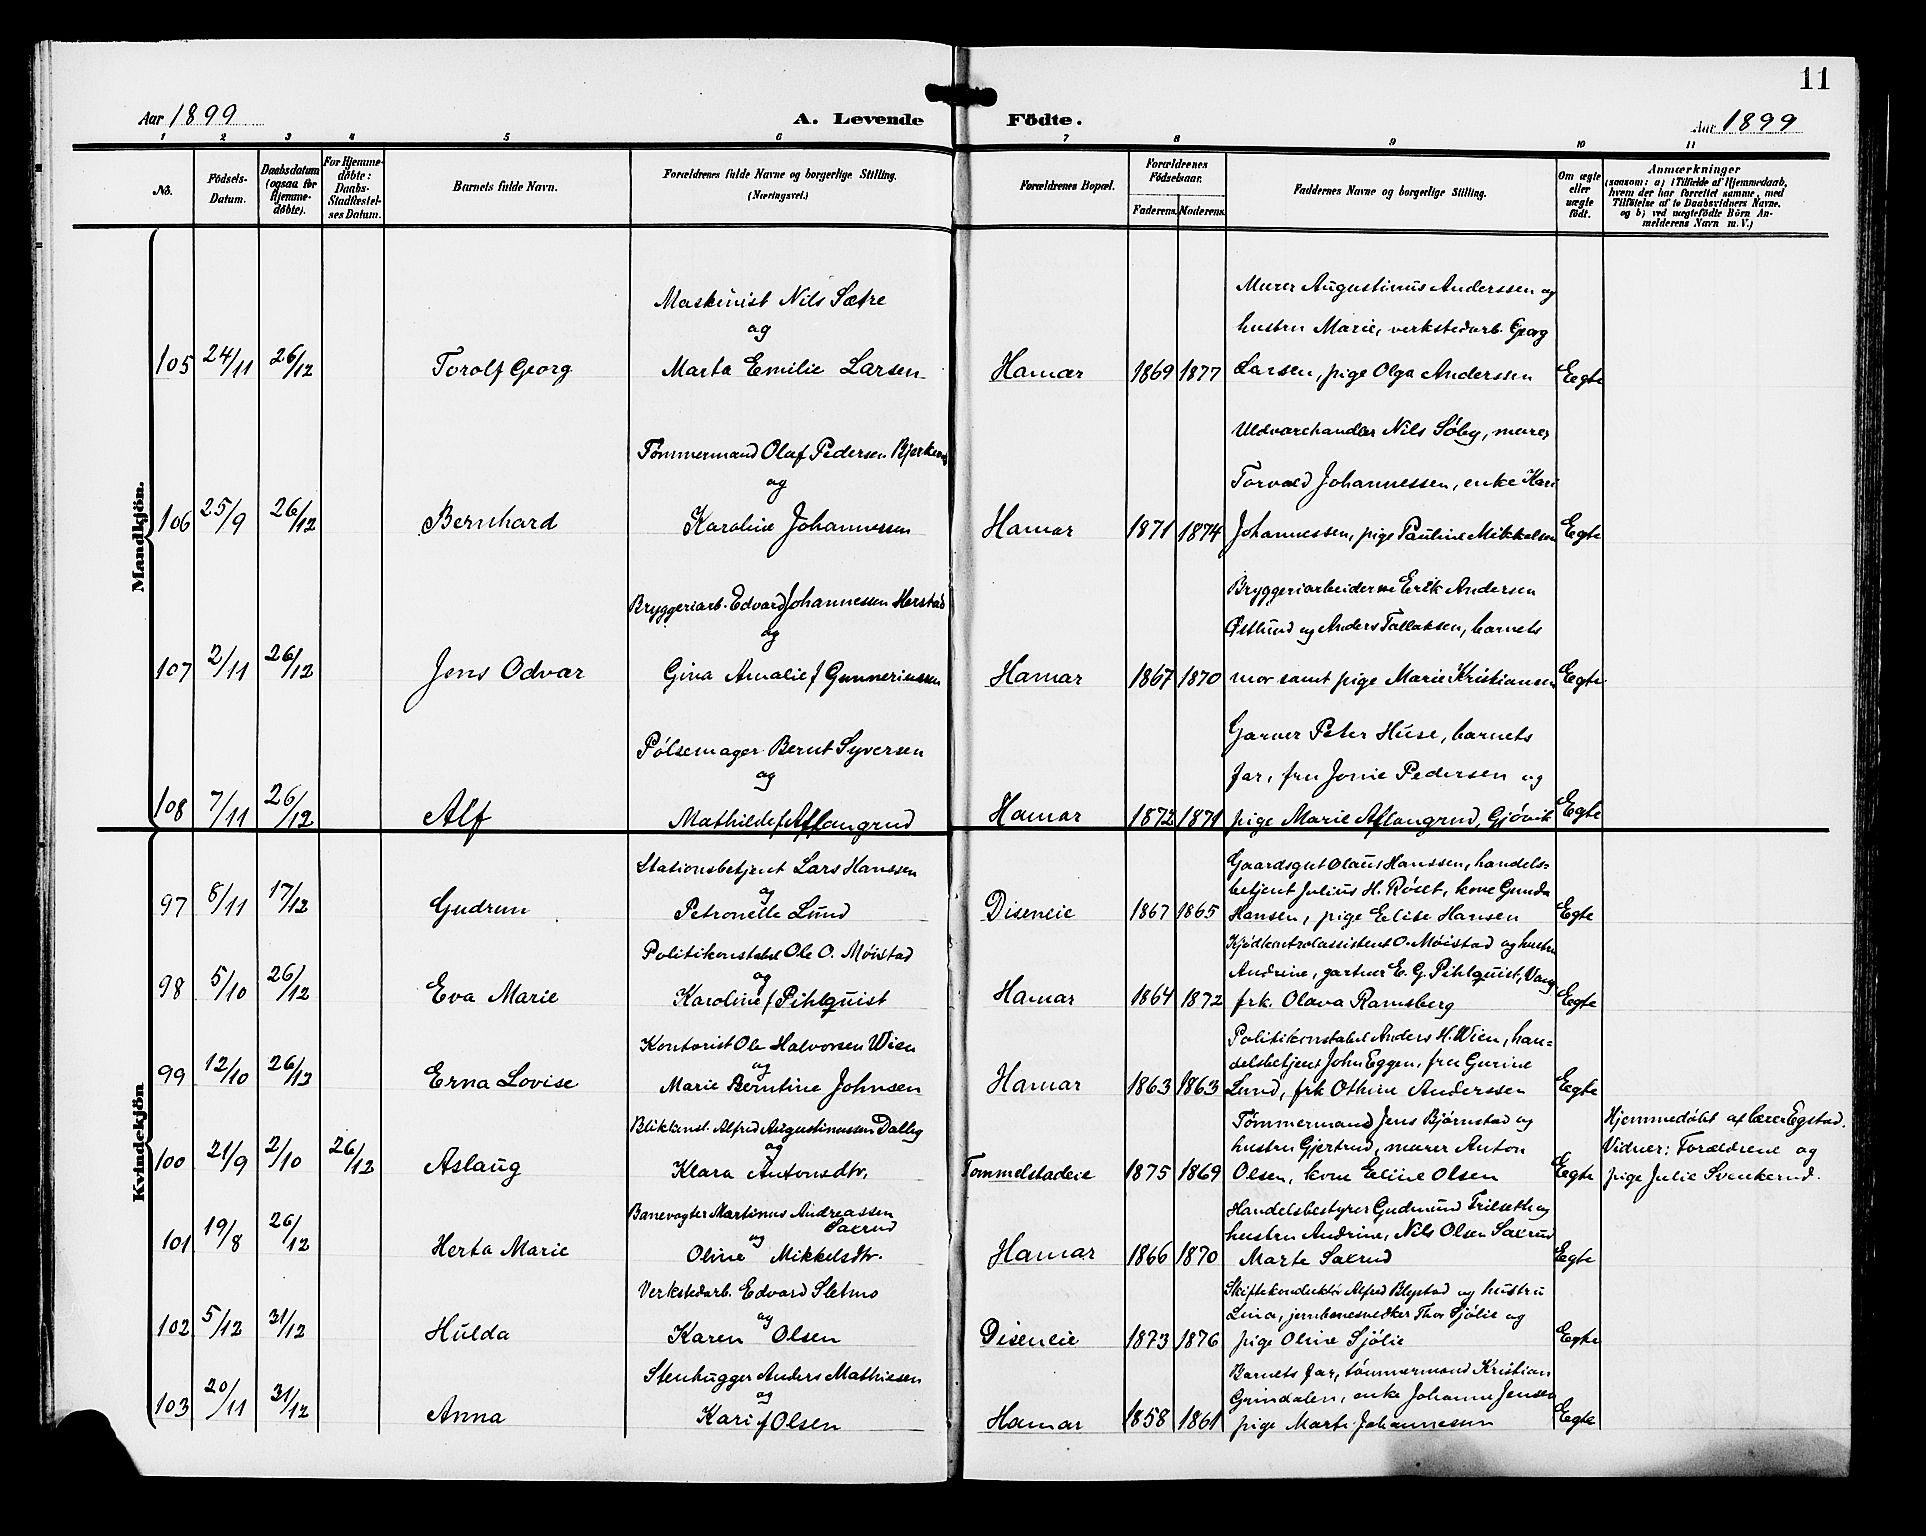 11
Aar 1899
A. Levende Födte.
Aar 1899
1 2 3 4 5 6 7 8 9 10 11
No.
Födsels-
Datum.
Daabsdatum
(ogsaa for
Hjemme-
døbte).
For Hjemme-
døbte:
Daabs-
Stadfæstel-
ses Datum.
Barnets fulde Navn.
Forældrenes fulde Navne og borgerlige Stilling.
(Næringsvei.)
Forældrenes Bopæl.
Forældrenes
Födselsaar.
Faderens. Moderens.
Faddernes Navne og borgerlige Stilling.
Om ægte
eller
uægte
født.
Anmærkninger
(saasom: a) i Tilfælde af Hjemmedaab,
hvem der har forrettet samme, med
Tilføielse af to Daabsvidners Navne.
og b) ved uægtefødte Börn An-
melderens Navn m. V.)
Mandkjön.
105 24/11 26/12 Torolf Georg
Maskinist Nils Sætre
og
Marta Emilie Larsen
Hamar 1869 1877
Murer Augustinus Anderssen og
hustru Marie, verkstedarb. Georg
Larsen, pige Olga Anderssen
Ægte
106 25/9 26/12 Bernhard
Tømmermand Olaf Pedersen
og
Karoline Johannessen
Hamar 1871 1874
Uldvarehandler Nils Søby, murer
Torvald Johannessen, enke Kari
Johannessen, pige Pauline Mikkelsen
Ægte
107 2/11 26/12 Jens Odvar
Bryggeriarb. Edvard Johannessen Herstad
og
Gina Amalie f Gunneriussen
Hamar 1867 1870
Bryggeriarbeiderne Erik Andersen
Østlund og Anders Tallaksen, barnets
mor samt pige Marie Kristiansen
Ægte
108 7/11 26/12 Alf
Pølsemager Bernt Syversen
og
Mathilde f Aflangrud
Hamar 1872 1871
Garver Peter Huse, barnets
far, fru Jonie Pedersen og
pige Marie Aflangrud, Gjøvik
Ægte
Kvindekjön
97 8/11 17/12 Gudrun
Stationsbetjent Lars Hanssen
og
Petronelle Lund
Diseneie 1867 1865
Gaardsgut Olaus Hanssen, handels-
betjent Julius H. Røset, kone Gunda
Hansen, pige Elise Hansen
Ægte
98 5/10 26/12 Eva Marie
Politikonstabel Ole O. Møistad
og
Karoline f Pihlquist
Hamar 1864 1872
Kjødkontrolassistent O. Møistad og hustru
Andrine, gartner E. G. Pihlquist, Vang
frk. Olava Ramsberg
Ægte
99 12/10 26/12 Erna Lovise
Kontorist Ole Halvorsen Wien
og
Marie Berntine Johnsen
Hamar 1863 1863
Politikonstabel Anders H. Wien, han-
delsbetjent John Eggen, fru Gurine
Lund, frk Othine Anderssen
Ægte
100 21/9 2/10 26/12 Aslaug
Blikkensl. Alfred Augustinussen Dalby
og
Klara Antonsdtr.
Tommelstadeie 1875 1869
Tømmermand Jens Bjørnstad og
hustru Gjertrud, murer Anton
Olsen, kone Eline Olsen
Ægte
Hjemmedøbt af lærer Egstad.
Vidner: Forældrene og
pige Julie Svenkerud.
101 19/8 26/12 Herta Marie
Banevogter Martinus Andreassen
Saxrud
og
Oline Mikkelsdtr.
Hamar 1866 1870
Handelsbestyrer Gudmund Trilseth og
hustru Andrine, Nils Olsen Saxrud
Marte Saxrud
Ægte
102 5/12 31/12 Hulda
Verkstedarb. Edvard Sletmo
og
Karen Olsen
Diseneie 1873 1876
Skiftekonduktør Alfred Blystad og hustru
Lina, jernbanesnedker Thor Sjølie og
pige Oline Sjølie
Ægte
103 20/11 31/12 Anna
Stenhugger Anders Mathiesen
og
Kari f Olsen
Hamar 1858 1861
Barnets far, tømmermand Kristian
Grindalen, enke Johanne Jensen
pige Marte Johannessen
Ægte